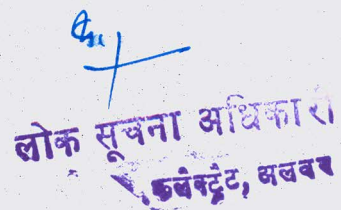 लोक सूचना अधिकारी
कलेक्ट्रेट, अलवर